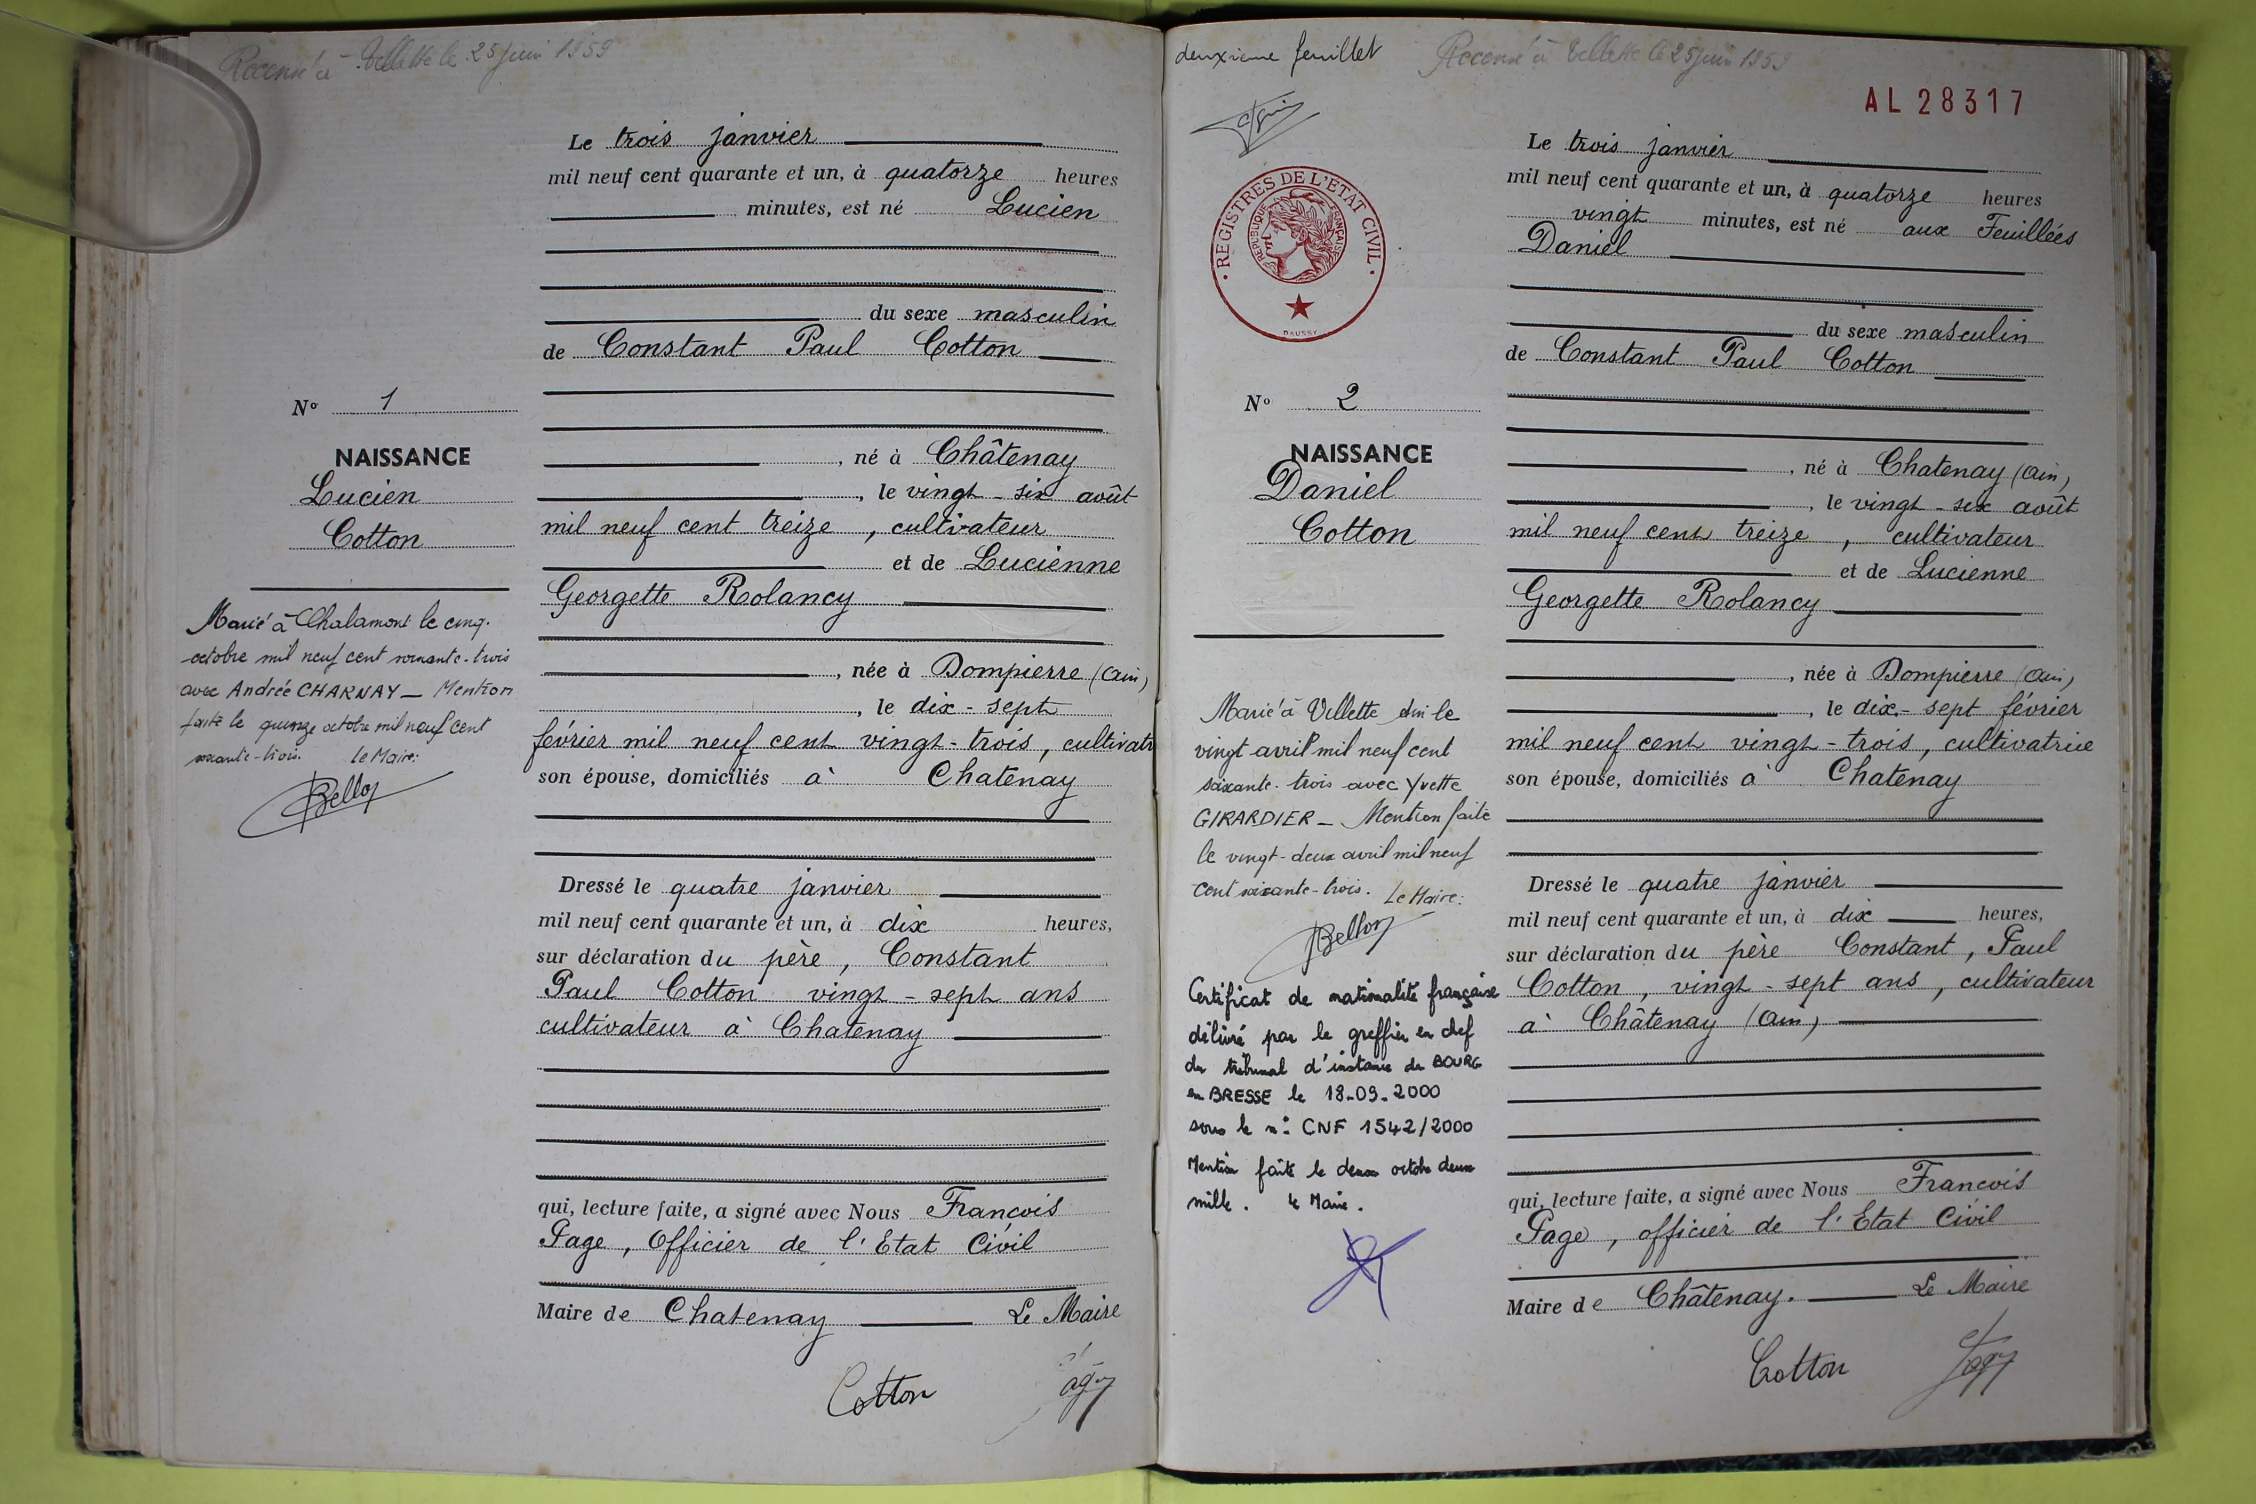 Recensé à Villette le 25 juin 1959
Le trois janvier
mil neuf cent quarante et un, à quatorze heures
minutes, est né Lucien
du sexe masculin
de Constant Paul Cotton
N° 1
NAISSANCE
Lucien
Cotton
, né à Châtenay
, le vingt-six août
mil neuf cent treize, cultivateur
et de Lucienne
Georgette Rolancy
, née à Dompierre (Ain)
, le dix-sept
février mil neuf cent vingt-trois, cultivatr
son épouse, domiciliés à Chatenay
Marié à Chalamont le cinq
octobre mil neuf cent soixante-trois
avec Andrée CHARNAY_ Mention
faite le quinze octobre mil neuf cent
soixante-trois. Le Maire:
Bellon
Dressé le quatre janvier
mil neuf cent quarante et un, à dix heures,
sur déclaration du père, Constant
Paul Cotton vingt-sept ans
cultivateur à Chatenay
qui, lecture faite, a signé avec Nous François
Page, Officier de l'Etat Civil
Maire de Chatenay Le Maire
Cotton
deuxième feuillet
Recensé à Villette le 25 juin 1959
AL 28317
REGISTRES DE L'ETAT CIVIL
REPUBLIQUE FRANÇAISE
DAUSSY
Le trois janvier
mil neuf cent quarante et un, à quatorze heures
vingt minutes, est né aux Feuillées
Daniel
du sexe masculin
de Constant Paul Cotton
N° 2
NAISSANCE
Daniel
Cotton
, né à Chatenay (Ain)
, le vingt-six août
mil neuf cent treize, cultivateur
et de Lucienne
Georgette Rolancy
, née à Dompierre (Ain)
, le dix-sept février
mil neuf cent vingt-trois, cultivatrice
son épouse, domiciliés à Chatenay
Marié à Villette Ain le
vingt avril mil neuf cent
soixante-trois avec Yvette
GIRARDIER_ Mention faite
le vingt-deux avril mil neuf
cent soixante-trois. Le Maire:
Bellon
Certificat de nationalité française
délivré par le greffier en chef
du tribunal d'instance de BOURG
en BRESSE le 18.09.2000
sous le n°: CNF 1542/2000
Mention faite le deux octobre deux
mille. Le Maire.
Dressé le quatre janvier
mil neuf cent quarante et un, à dix heures,
sur déclaration du père Constant, Paul
Cotton, vingt-sept ans, cultivateur
à Châtenay (Ain)
qui, lecture faite, a signé avec Nous François
Page, officier de l'Etat Civil
Maire de Châtenay. Le Maire
Cotton